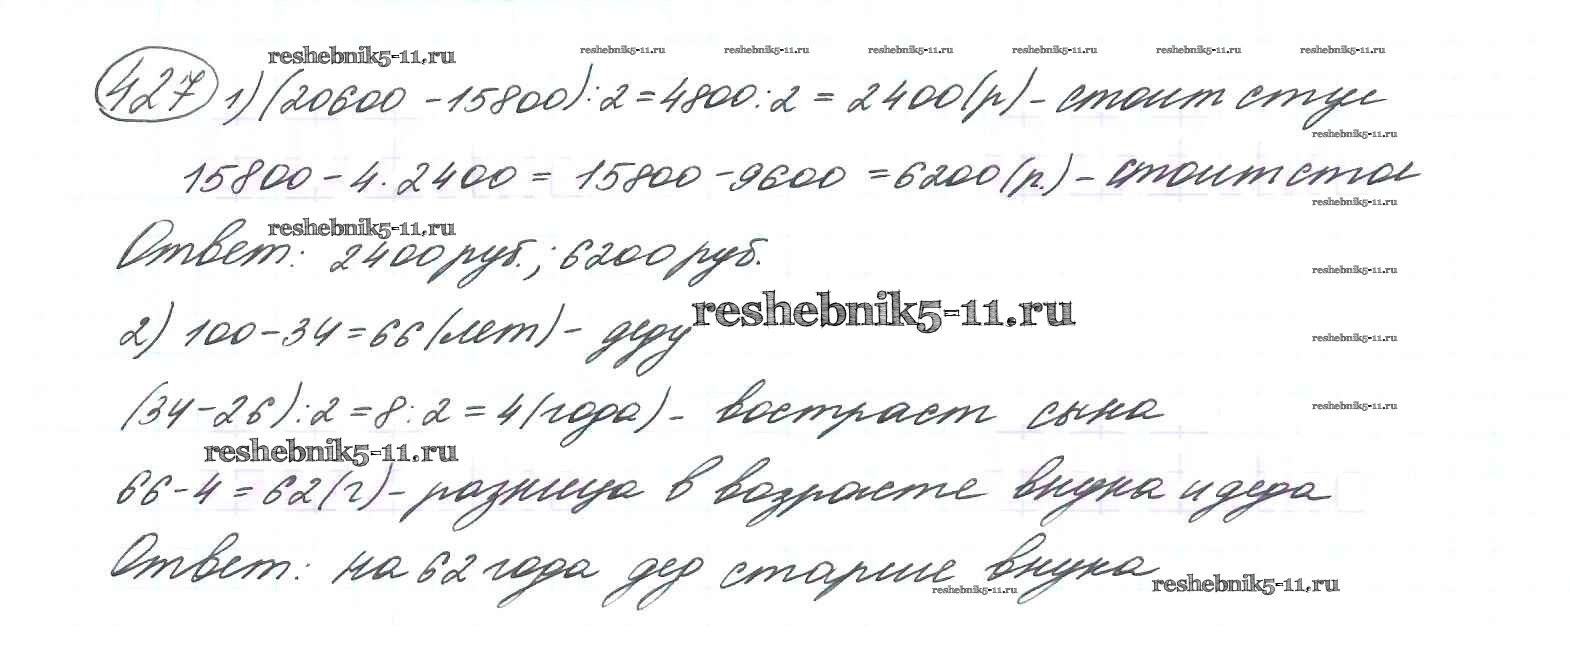 reshebnik5-11.ru reshebnik5-11.ru reshebnik5-11.ru reshebnik5-11.ru reshebnik5-11.ru reshebnik5-11.ru reshebnik5-11.ru
427 1) (20600 - 15800) : 2 = 4800 : 2 = 2400 (р) - стоит стул
reshebnik5-11.ru
15800 - 4 · 2400 = 15800 - 9600 = 6200 (р.) - стоит стол
reshebnik5-11.ru
reshebnik5-11.ru
Ответ: 2400 руб.; 6200 руб.
reshebnik5-11.ru
2) 100 - 34 = 66 (лет) - деду
reshebnik5-11.ru
reshebnik5-11.ru
(34 - 26) : 2 = 8 : 2 = 4 (года) - востраст сына
reshebnik5-11.ru
reshebnik5-11.ru
66 - 4 = 62 (г) - разница в возрасте внука и деда
Ответ: на 62 года дед старше внука
reshebnik5-11.ru
reshebnik5-11.ru